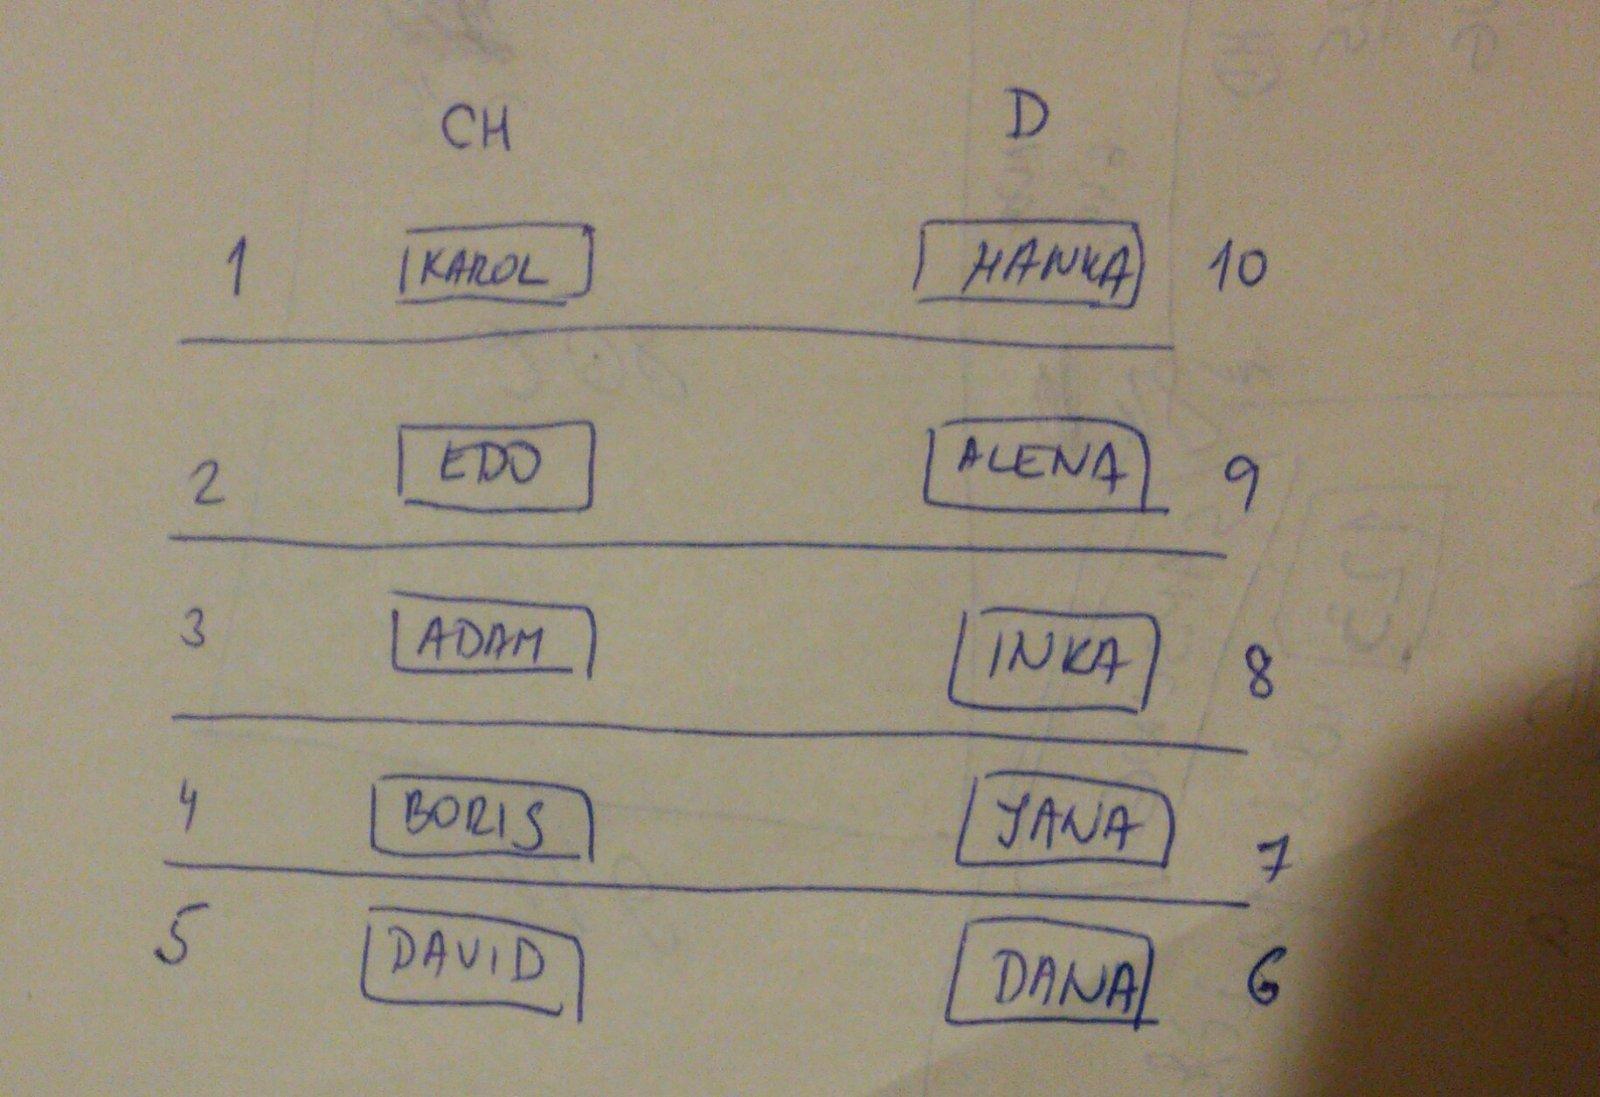 CH D
1 KAROL HANKA 10
2 EDO ALENA 9
3 ADAM INKA 8
4 BORIS JANA 7
5 DAVID DANA 6